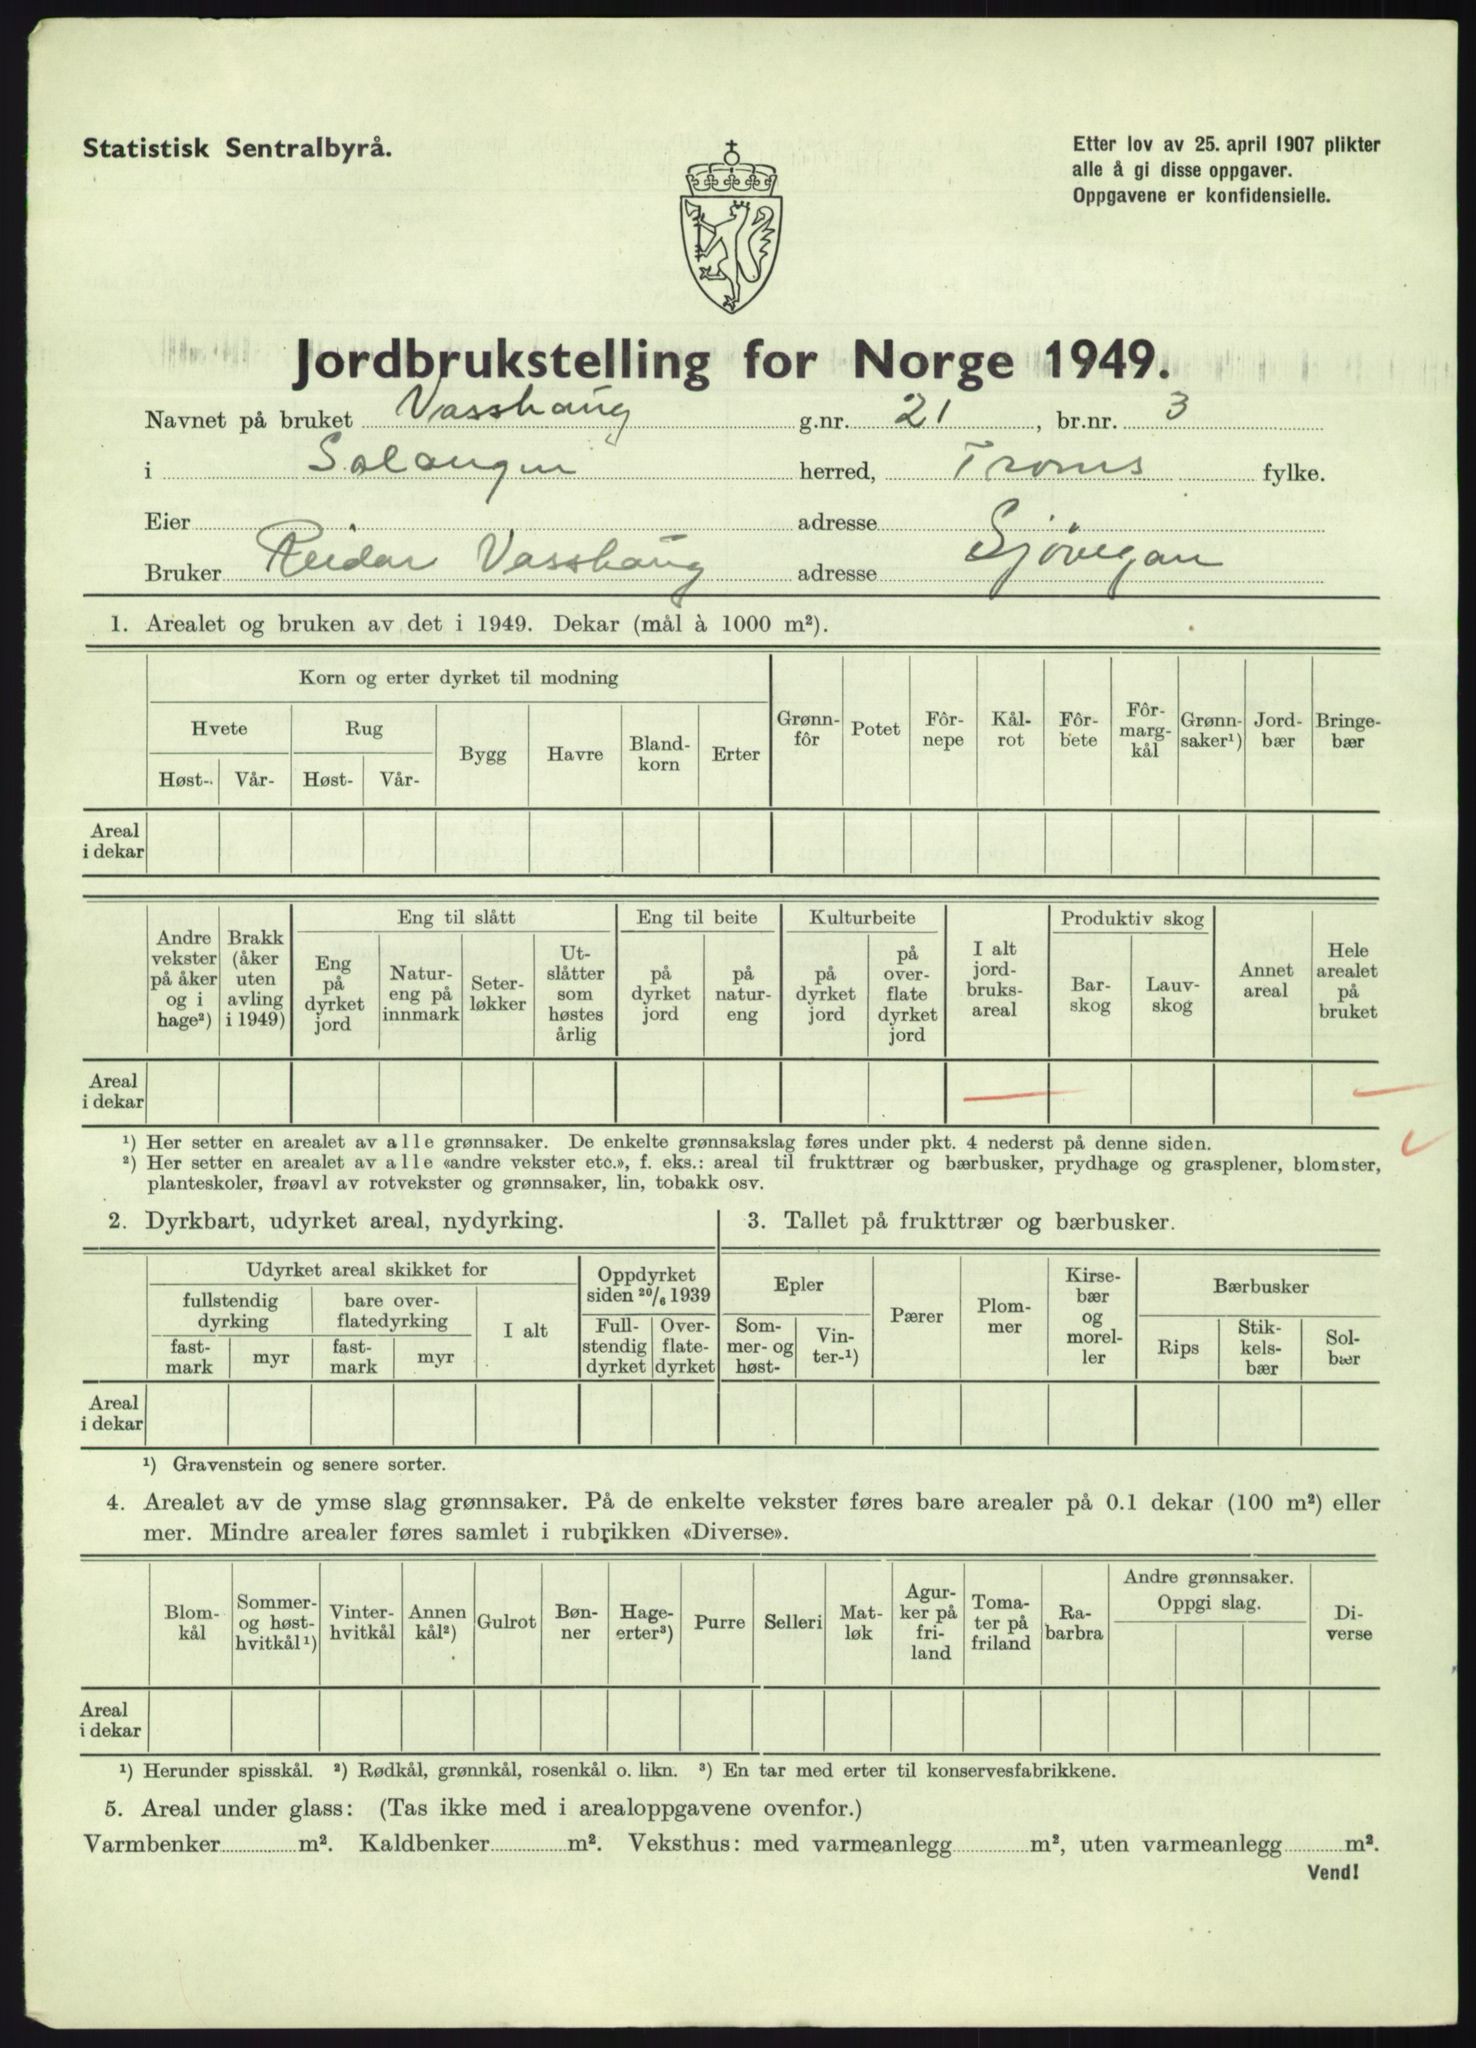 Statistisk Sentralbyrå.
Etter lov av 25. april 1907 plikter
alle å gi disse oppgaver.
Oppgavene er konfidensielle.
Jordbrukstelling for Norge 1949.
Navnet på bruket Vasshaug g.nr. 21, br.nr. 3
i Salangen herred, Troms fylke.
Eier adresse
Bruker Reidar Vasshaug adresse Sjøvegan
1. Arealet og bruken av det i 1949. Dekar (mål à 1000 m²).
Korn og erter dyrket til modning
Hvete Rug Bygg Havre Bland-korn Erter Grønn-fôr Potet Fôr-nepe Kål-rot Fôr-bete Fôr-marg-kål Grønn-saker¹) Jord-bær Bringe-bær
Høst- Vår- Høst- Vår-
Areal
i dekar
Andre vekster på åker og i hage²) Brakk (åker uten avling i 1949) Eng til slått Eng til beite Kulturbeite I alt jord-bruks-areal Produktiv skog Annet areal Hele arealet på bruket
Eng på dyrket jord Natur-eng på innmark Seter-løkker Ut-slåtter som høstes årlig på dyrket jord på natur-eng på dyrket jord på over-flate dyrket jord Bar-skog Lauv-skog
Areal
i dekar
¹) Her setter en arealet av alle grønnsaker. De enkelte grønnsakslag føres under pkt. 4 nederst på denne siden.
²) Her setter en arealet av alle «andre vekster etc.», f. eks.: areal til frukttrær og bærbusker, prydhage og grasplener, blomster,
planteskoler, frøavl av rotvekster og grønnsaker, lin, tobakk osv.
2. Dyrkbart, udyrket areal, nydyrking.
Udyrket areal skikket for Oppdyrket siden 20/6 1939
fullstendig dyrking bare over-flatedyrking I alt Full-stendig dyrket Over-flate-dyrket
fast-mark myr fast-mark myr
Areal
i dekar
3. Tallet på frukttrær og bærbusker.
Epler Pærer Plom-mer Kirse-bær og morel-ler Bærbusker
Som-mer- og høst- Vin-ter-¹) Rips Stik-kels-bær Sol-bær
¹) Gravenstein og senere sorter.
4. Arealet av de ymse slag grønnsaker. På de enkelte vekster føres bare arealer på 0.1 dekar (100 m²) eller
mer. Mindre arealer føres samlet i rubrikken «Diverse».
Blom-kål Sommer- og høst-hvitkål¹) Vinter-hvitkål Annen kål²) Gulrot Bøn-ner Hage-erter³) Purre Selleri Mat-løk Agur-ker på fri-land Toma-ter på friland Ra-barbra Andre grønnsaker. Oppgi slag. Di-verse
Areal
i dekar
¹) Herunder spisskål. ²) Rødkål, grønnkål, rosenkål o. likn. ³) En tar med erter til konservesfabrikkene.
5. Areal under glass: (Tas ikke med i arealoppgavene ovenfor.)
Varmbenker m². Kaldbenker m². Veksthus: med varmeanlegg m², uten varmeanlegg m².
Vend!